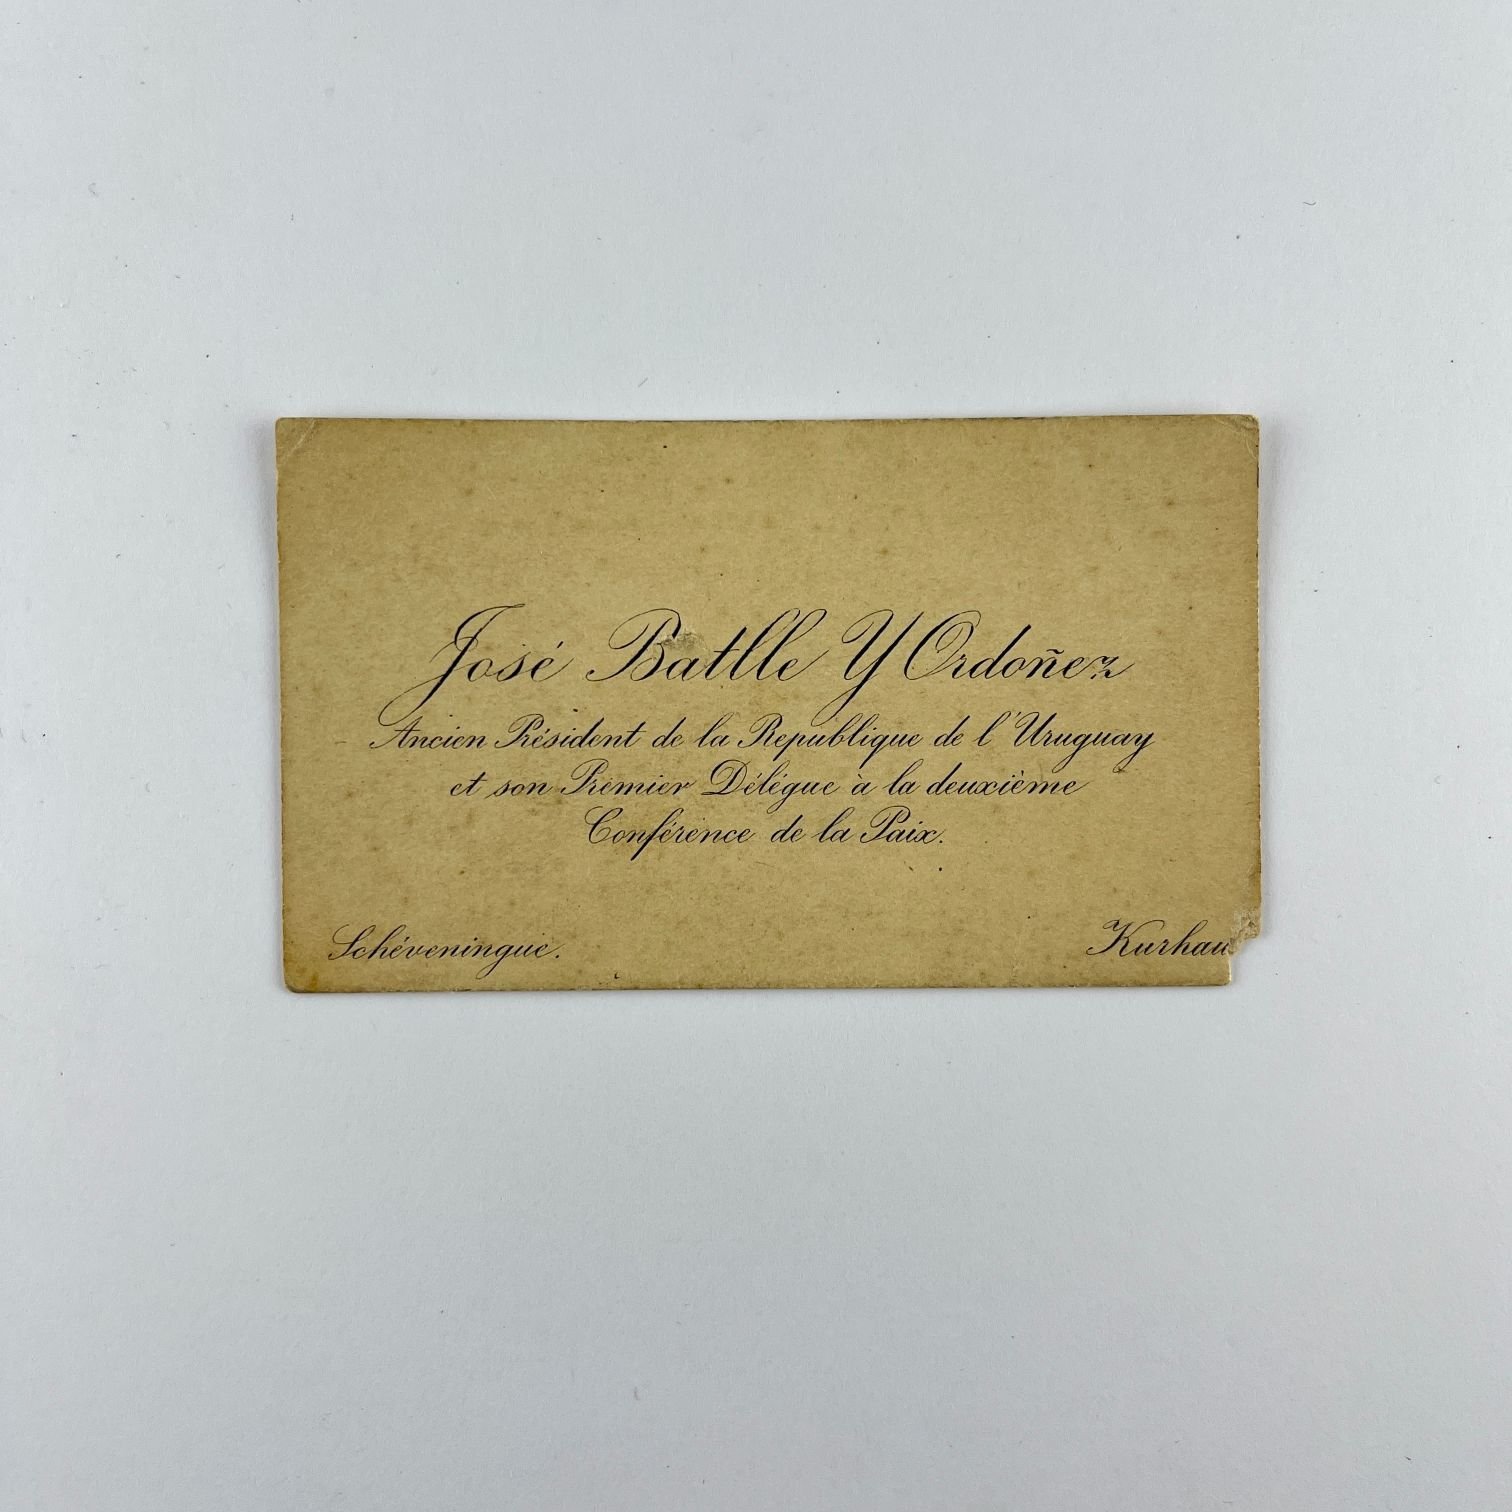 José Batlle Y Ordoñez
Ancien Président de la Republique de l'Uruguay
et son Premier Délégue à la deuxième
Conférence de la Paix.
Schéveningue.
Kurhau